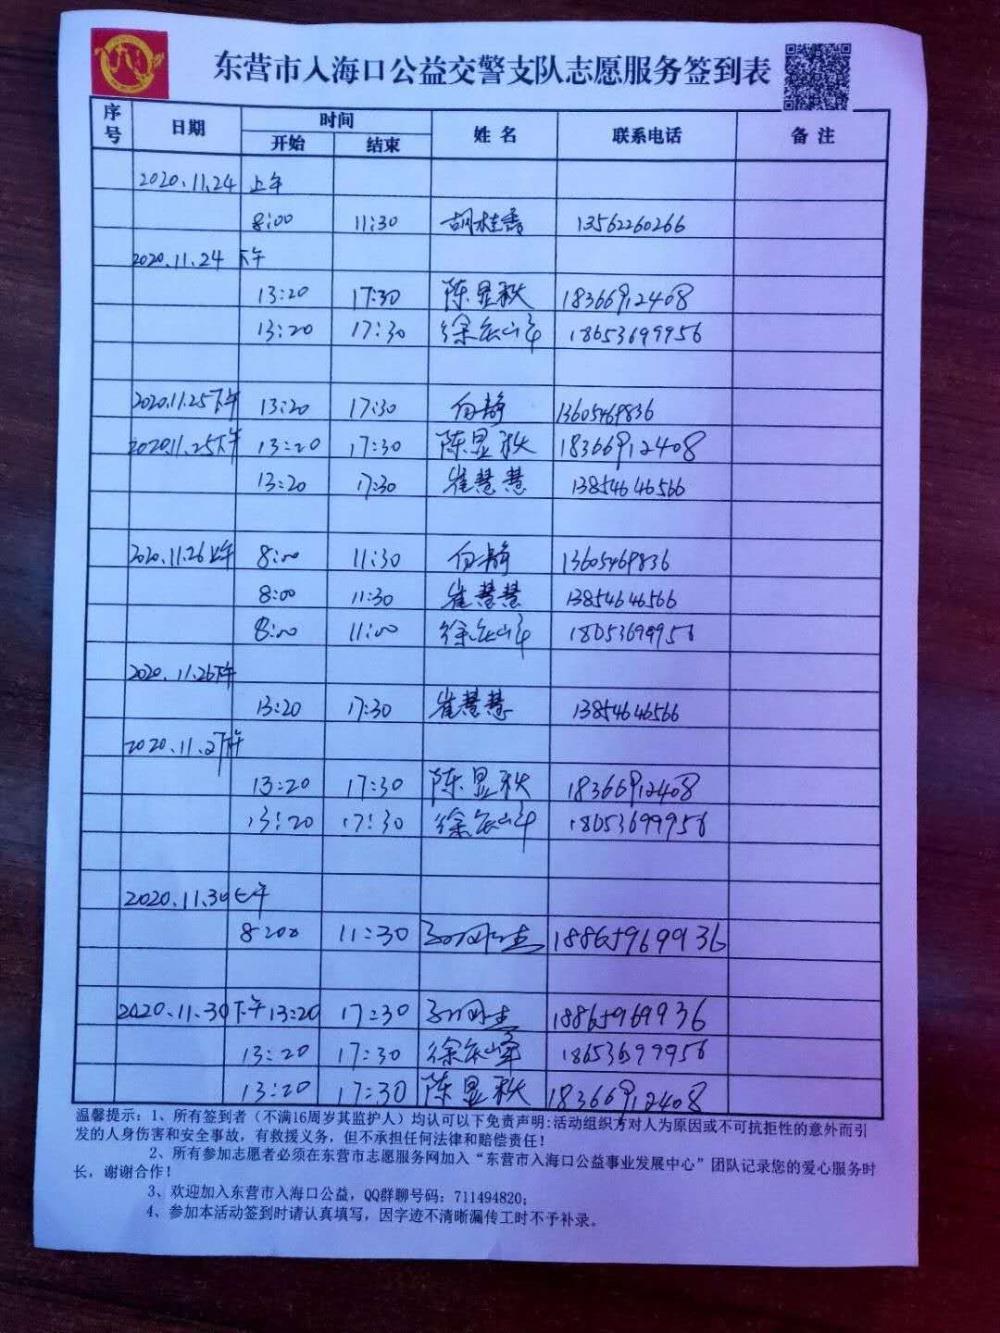 东营市入海口公益交警支队志愿服务签到表
序号 日期 时间 姓名 联系电话 备注
开始 结束
2020.11.24 上午
8:00 11:30 胡桂香 13562260266
2020.11.24 下午
13:20 17:30 陈显秋 18366912408
13:20 17:30 徐 18653699956
2020.11.25下午 13:20 17:30 向静 13605469836
2020.11.25下午 13:20 17:30 陈显秋 18366912408
13:20 17:30 崔慧慧 13854646566
2020.11.26上午 8:00 11:30 向静 13605469836
8:00 11:30 崔慧慧 13854646566
8:00 11:00 徐 18653699956
2020.11.26下午
13:20 17:30 崔慧慧 13854646566
2020.11.27下午
13:20 17:30 陈显秋 18366912408
13:20 17:30 徐 18653699956
2020.11.30 上午
8:00 11:30 18865969936
2020.11.30 下午13:20 17:30 18865969936
13:20 17:30 徐 18653699956
13:20 17:30 陈显秋 18366912408
温馨提示：1、所有签到者（不满16周岁其监护人）均认可以下免责声明：活动组织方对人为原因或不可抗拒性的意外而引
发的人身伤害和安全事故，有救援义务，但不承担任何法律和赔偿责任！
2、所有参加志愿者必须在东营市志愿服务网加入“东营市入海口公益事业发展中心”团队记录您的爱心服务时
长，谢谢合作！
3、欢迎加入东营市入海口公益，QQ群聊号码：711494820；
4、参加本活动签到时请认真填写，因字迹不清晰漏传工时不予补录。